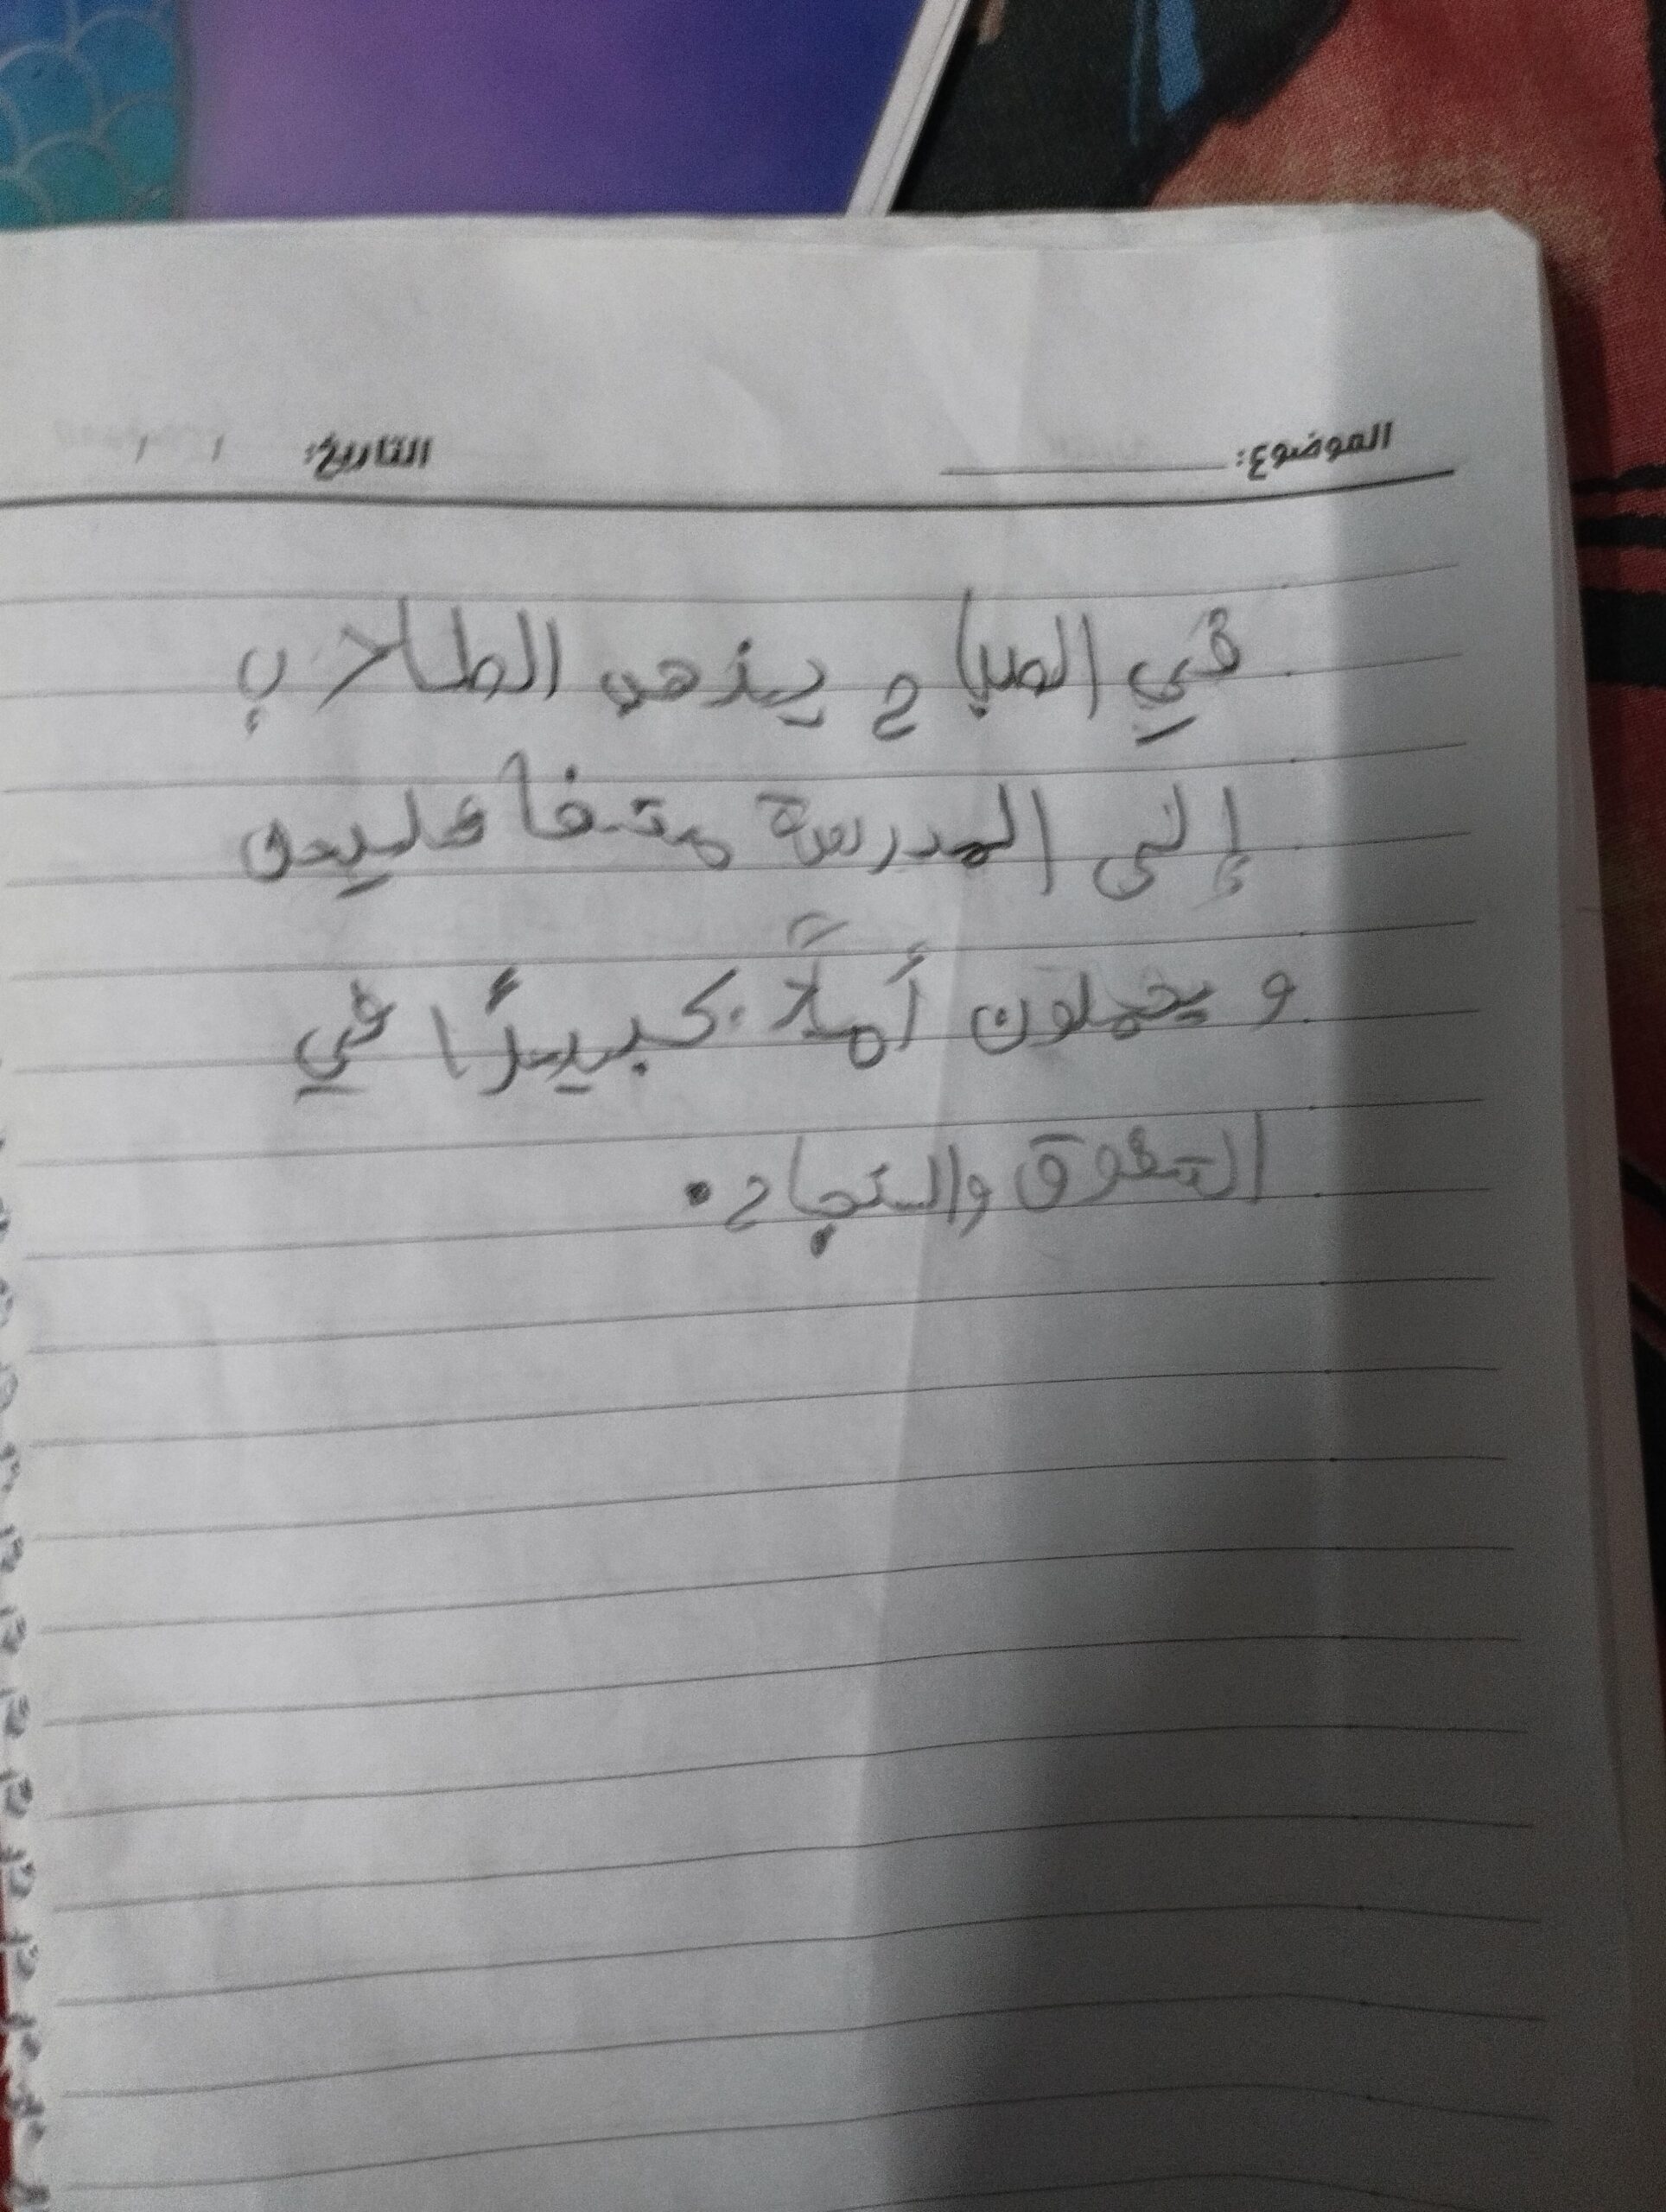 الموضوع: التاريخ: / /
في الصباح يذهب الطلاب
إلى المدرسة متفائلين
و يحملون أملاً كبيرًا في
التفوق والنجاح.